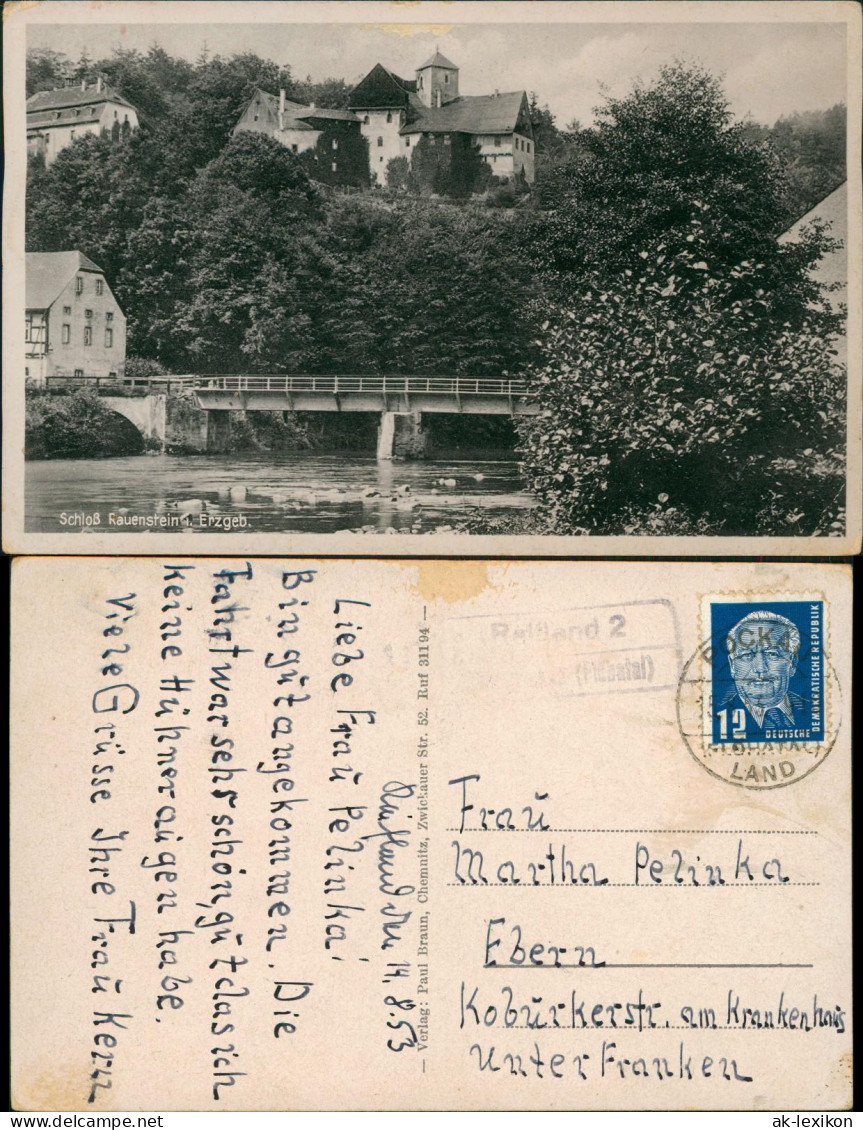 Schloß Rauenstein i. Erzgeb.
Reifland 2
POCKAU
(FLÖHATAL)
LAND
12
DEUTSCHE
DEMOKRATISCHE REPUBLIK
den 14.8.53
Liebe Frau Pelinka!
Bin gut angekommen. Die
Fahrt war sehr schön, gut das ich
keine Hühneraugen habe.
Viele Grüsse Ihre Frau Kern
— Verlag: Paul Braun, Chemnitz, Zwickauer Str. 52. Ruf 31194 —
Frau
Martha Pelinka
Ebern
Koburkerstr. am Krankenhaus
Unter Franken
www.ak-ansichtskarten.de
ak-lexikon